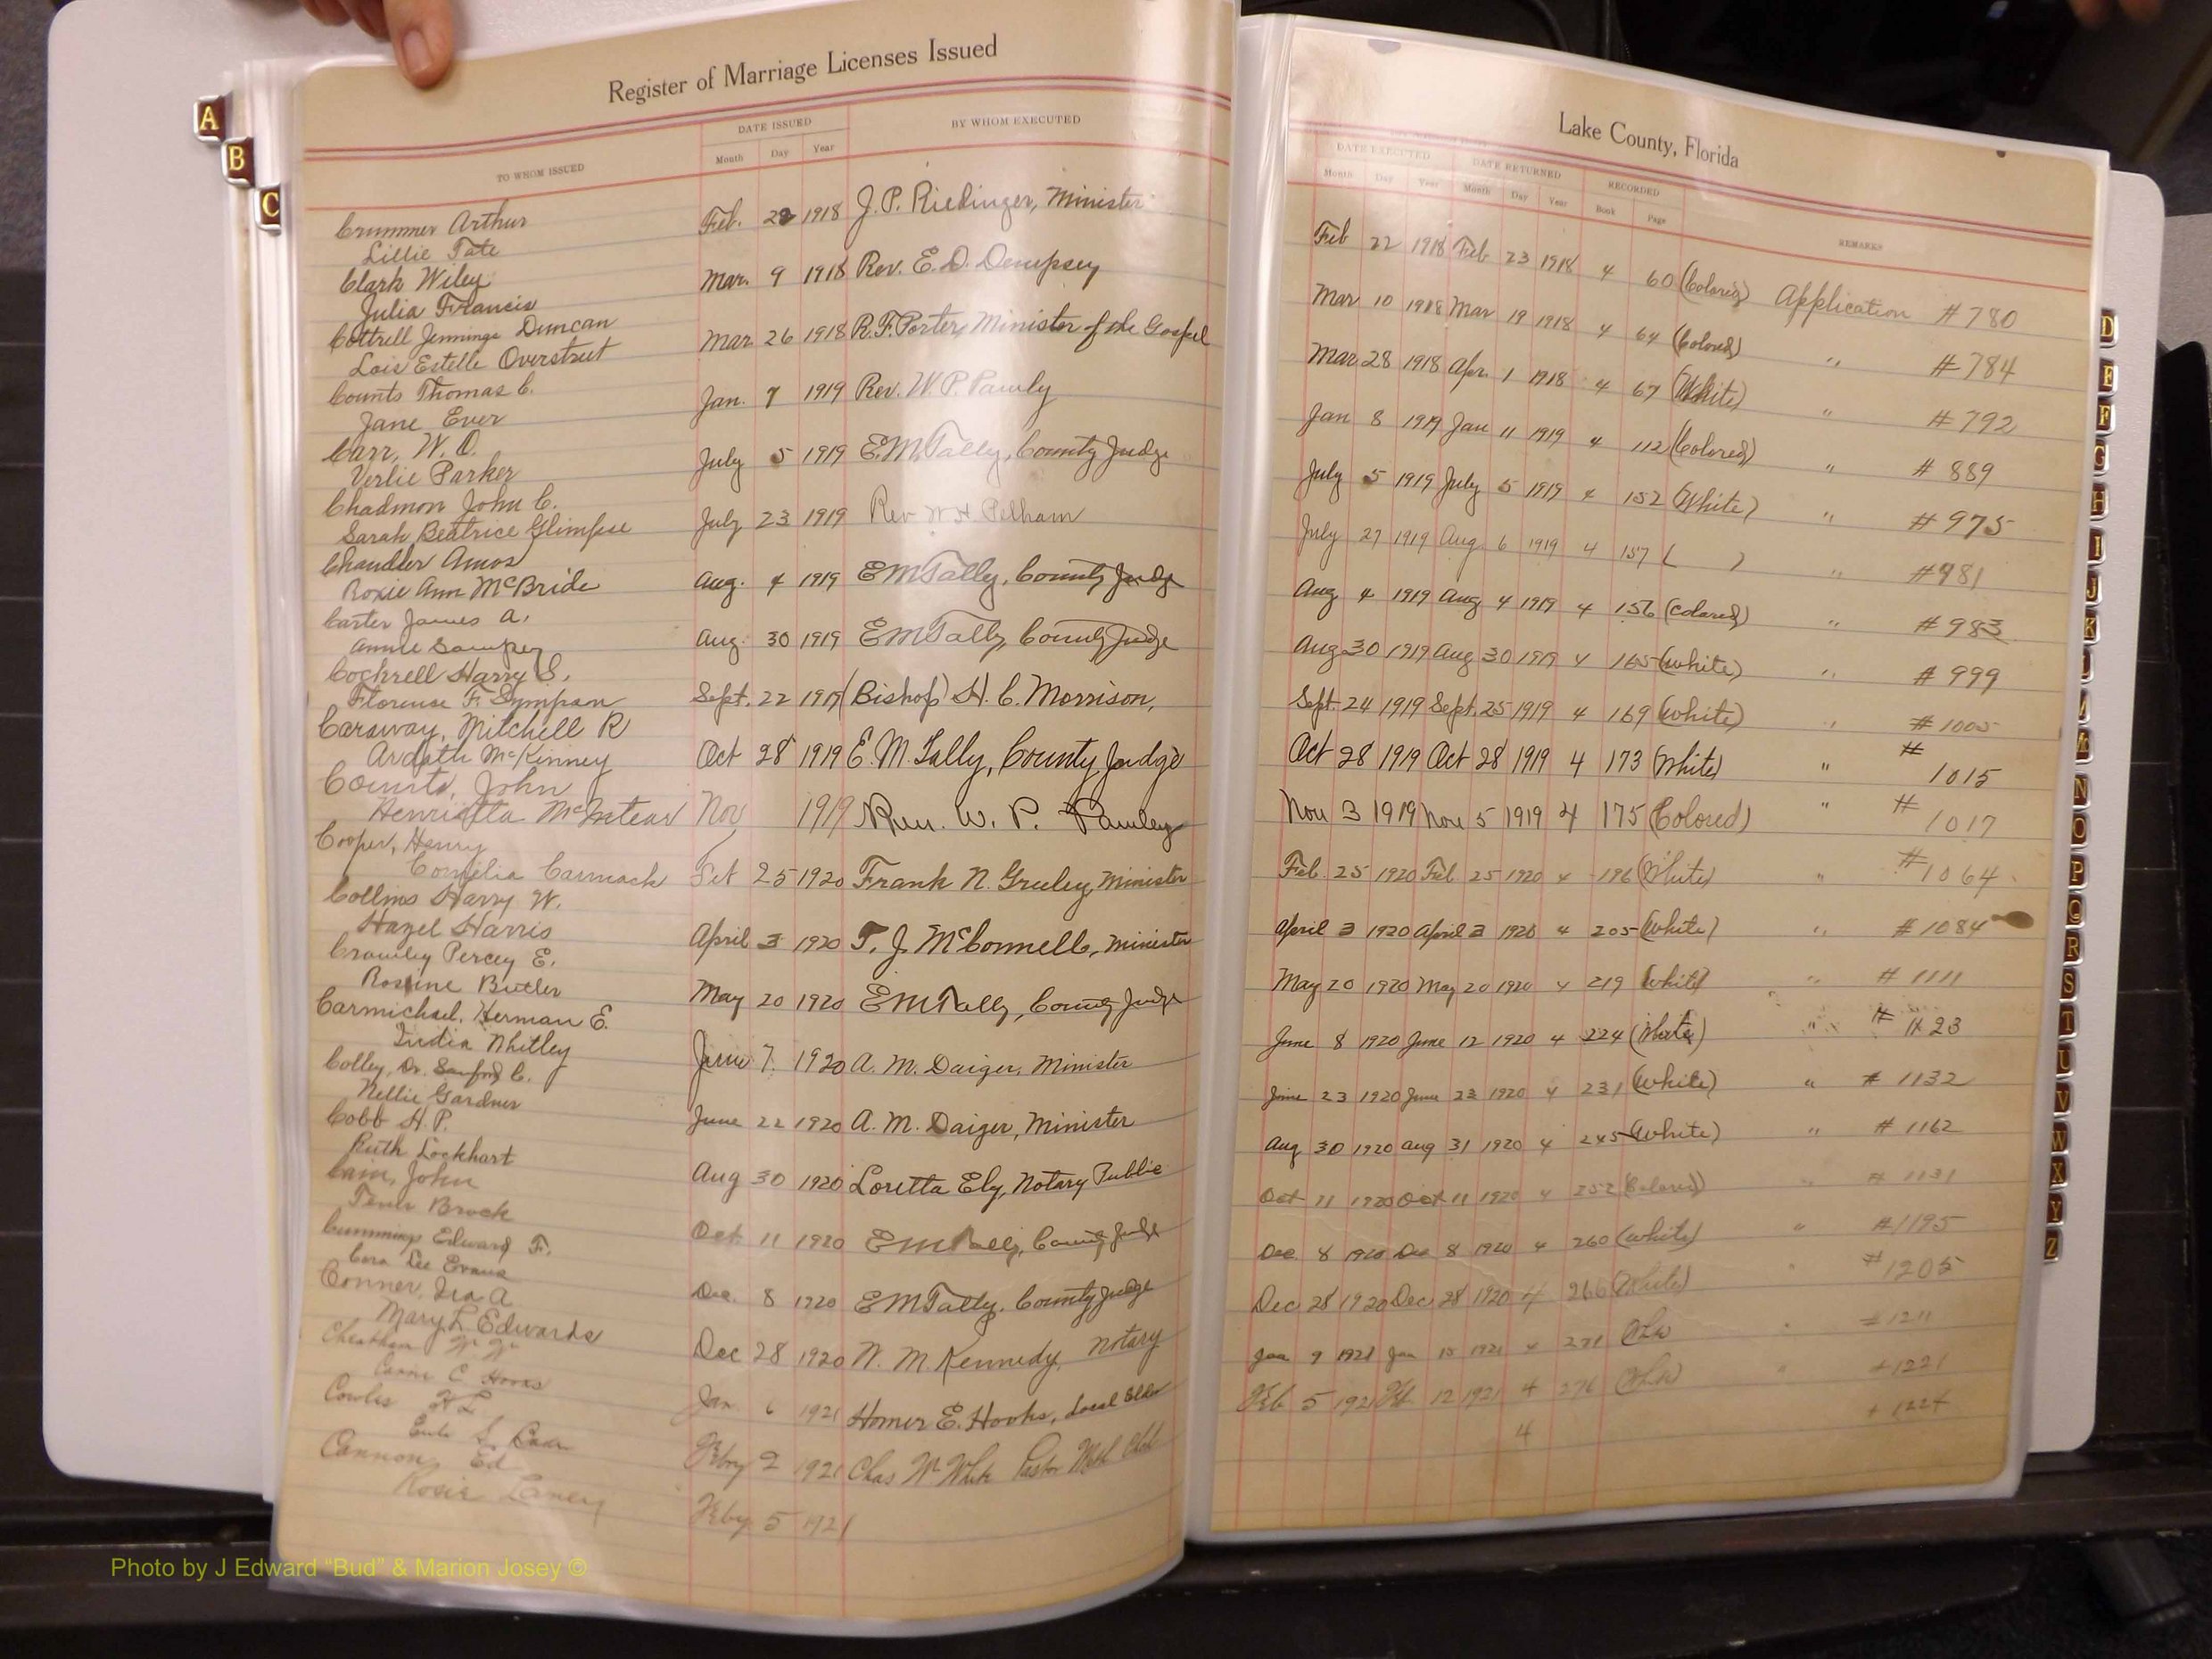 Register of Marriage Licenses Issued
TO WHOM ISSUED
DATE ISSUED
Month Day Year
BY WHOM EXECUTED
Crummer Arthur Feb. 22 1918 J. P. Riedinger, Minister
Lillie Tate
Clark Wiley Mar. 9 1918 Rev. E. D. Dempsey
Julia Francis
Cottrell Jennings Duncan Mar 26 1918 R. F. Porter, Minister of the Gospel
Lois Estelle Overstreet
Counts Thomas C. Jan. 7 1919 Rev. W. P. Pauly
Jane Ever
Carr, W. O. July 5 1919 E. M. Tally, County Judge
Verlie Parker
Chadmon John C. July 23 1919 Rev W. H. Pelham
Sarah Beatrice Glimpse
Chandler Amos Aug. 4 1919 E M Tally, County Judge
Roxie Ann McBride
Carter James A. Aug. 30 1919 E M Tally, County Judge
Annie
Cockrell Harry S. Sept. 22 1919 (Bishop) H. C. Morrison,
Florense F. Sympson
Caraway, Mitchell R Oct 28 1919 E. M. Tally, County Judge
Ardath McKinney
Counts, John Nov 1919 Rev. W. P. Pauley
Henrietta
Cooper, Henry 25 1920 Frank N. Greeley, Minister
Cornelia Carmack
Collins Harry W. April 3 1920 T. J. McConnell, Minister
Hazel Harris
Crawley Percey E. May 20 1920 E M Tally, County Judge
Rosine Butler
Carmichael, Herman E. June 7. 1920 A. M. Daiger, Minister
India Whitley
Colley, Dr. Sanford C. June 22 1920 A. M. Daiger, Minister
Nellie Gardner
Cobb H. P. Aug 30 1920 Loretta Ely, Notary Public
Ruth Lockhart
Cain, John Oct 11 1920 E M Tally, County Judge
Brock
Cummings Edward F. Dec. 8 1920 E M Tally, County Judge
Cora Lee Evans
Conner, Ira A Dec 28 1920 W. M. Kennedy, Notary
Mary L. Edwards
Cheatham Jan 6 1921 Homer E. Hooks, Local Elder
C Hooks
Cowles H L Feby 2 1921 Chas W White Pastor Meth Chch
Cannon, Ed Feby 5 1921
Rosie Laney
Lake County, Florida
DATE EXECUTED
Month Day Year
DATE RETURNED
Month Day Year
RECORDED
Book Page
REMARKS
Feb 22 1918 Feb 23 1918 4 60 (Colored) Application # 780
Mar 10 1918 Mar 19 1918 4 64 (Colored) " # 784
Mar 28 1918 Apr. 1 1918 4 67 (White) " # 792
Jan 8 1919 Jan 11 1919 4 112 (Colored) " # 889
July 5 1919 July 5 1919 4 152 (White) " # 975
July 27 1919 Aug. 6 1919 4 157 ( ) " # 981
Aug 4 1919 Aug 4 1919 4 156 (Colored) " # 983
Aug 30 1919 Aug 30 1919 4 165 (White) " # 999
Sept. 24 1919 Sept. 25 1919 4 169 (White) " # 1005
Oct 28 1919 Oct 28 1919 4 173 (White) " # 1015
Nov 3 1919 Nov 5 1919 4 175 (Colored) " # 1017
Feb. 25 1920 Feb 25 1920 4 196 (White) " # 1064
April 3 1920 April 3 1920 4 205 (White) " # 1084
May 20 1920 May 20 1920 4 219 (White) " # 1111
June 8 1920 June 12 1920 4 224 (White) " # 1123
June 23 1920 June 23 1920 4 231 (White) " # 1132
Aug 30 1920 Aug 31 1920 4 245 (White) " # 1162
Oct 11 1920 Oct 11 1920 4 252 (Colored) " # 1131
Dec. 8 1920 Dec 8 1920 4 260 (White) " # 1195
Dec 28 1920 Dec 28 1920 4 266 (White) " # 1205
Jan 9 1921 Jan 15 1921 4 271 " # 1211
Feb 5 1921 Feb 12 1921 4 276 " # 1221
4 # 1224
A
B
C
D
E
F
G
H
I
J
K
N
O
P
Q
R
S
T
U
V
W
X
Y
Z
Photo by J Edward “Bud” & Marion Josey ©